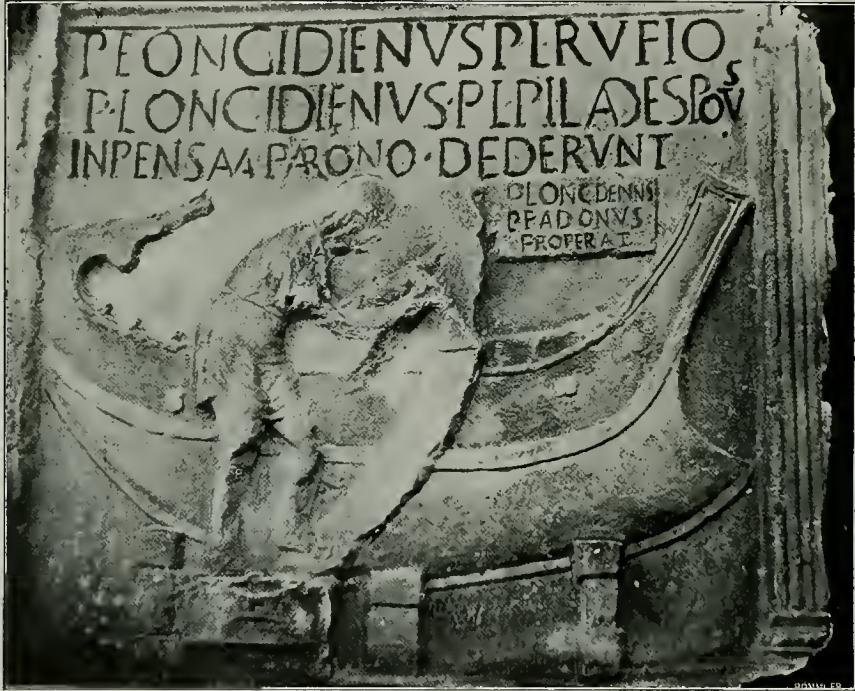 P·LONGIDIENVS·P·L·RVFIO
P·LONGIDIENVS·P·L·PILADESPOTVS
INPENSAM PATRONO·DEDERVNT
P·LONGIDIENVS
P·F·AD ONVS
PROPERAT